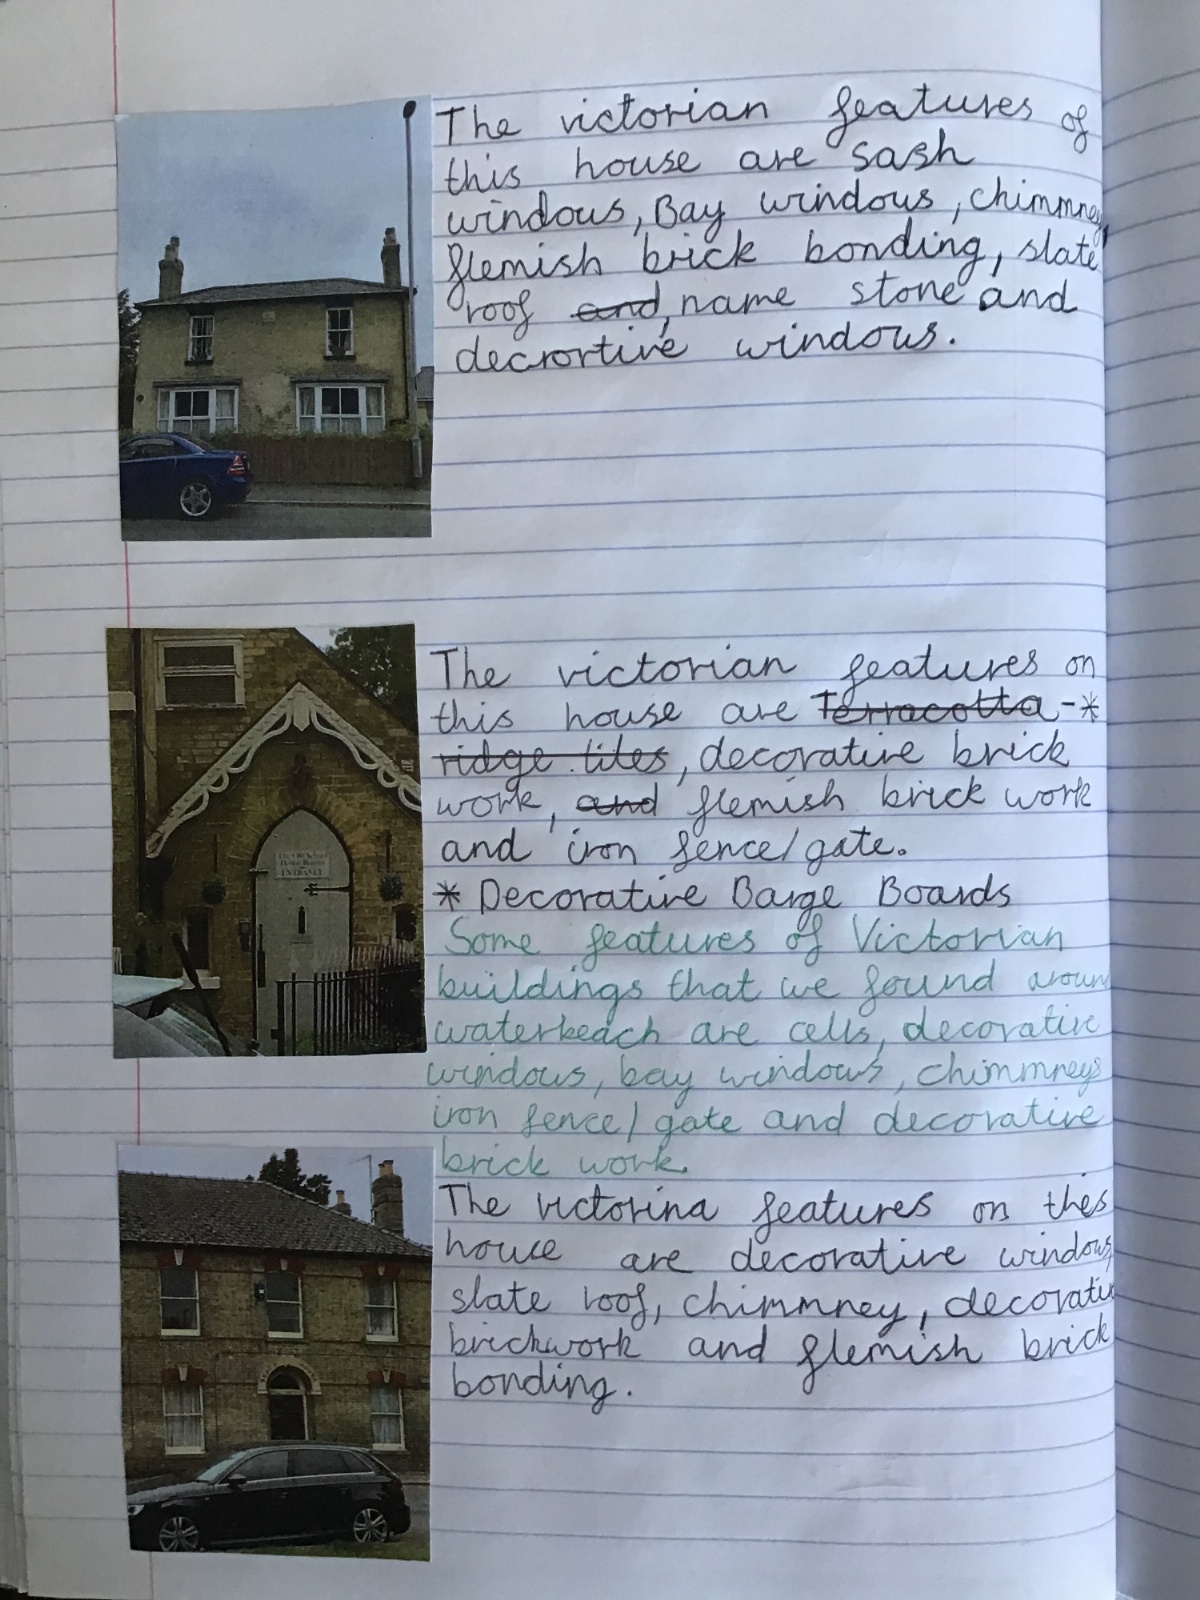 The victorian features of
this house are sash
windous, Bay windous, chimmney
flemish brick bonding, slate
roof and, name stone and
decrortive windous.
The victorian features on
this house are Terracotta -*
ridge tiles, decorative brick
work, and flemish brick work
and iron fence/gate.
* Decorative Barge Boards
Some features of Victorian
buildings that we found aroun
waterbeach are cells, decorative
windous, bay windous, chimmneys
iron fence/gate and decorative
brick work.
The victorina features on thes
houce are decorative windous,
slate roof, chimmney, decorativ
brickwork and flemish brick
bonding.
The Old School
ENTRANCE